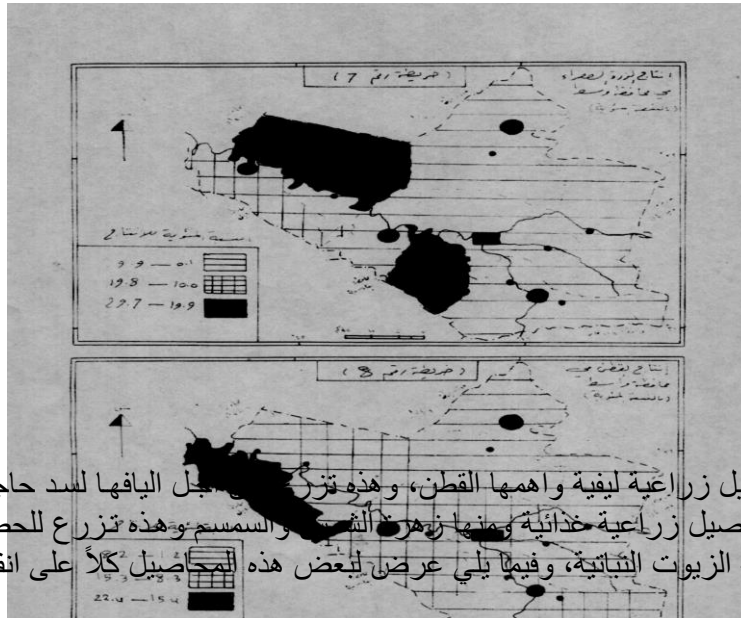 (خريطة رقم 7)
إنتاج الذرة الصفراء
في محافظة واسط
(بالنسبة المئوية)
النسبة المئوية للإنتاج
0.1 — 9.9
10.0 — 19.8
19.9 — 29.7
(خريطة رقم 8)
إنتاج القطن في
محافظة واسط
(بالنسبة المئوية)
يل زراعية ليفية واهمها القطن، وهذه تزرع من اجل اليافها لسد حاج
صيل زراعية غذائية ومنها زهرة الشمس والسمسم وهذه تزرع للحص
الزيوت النباتية، وفيما يلي عرض لبعض هذه المحاصيل كلاً على انف
8.3 — 15.3
15.4 — 22.4